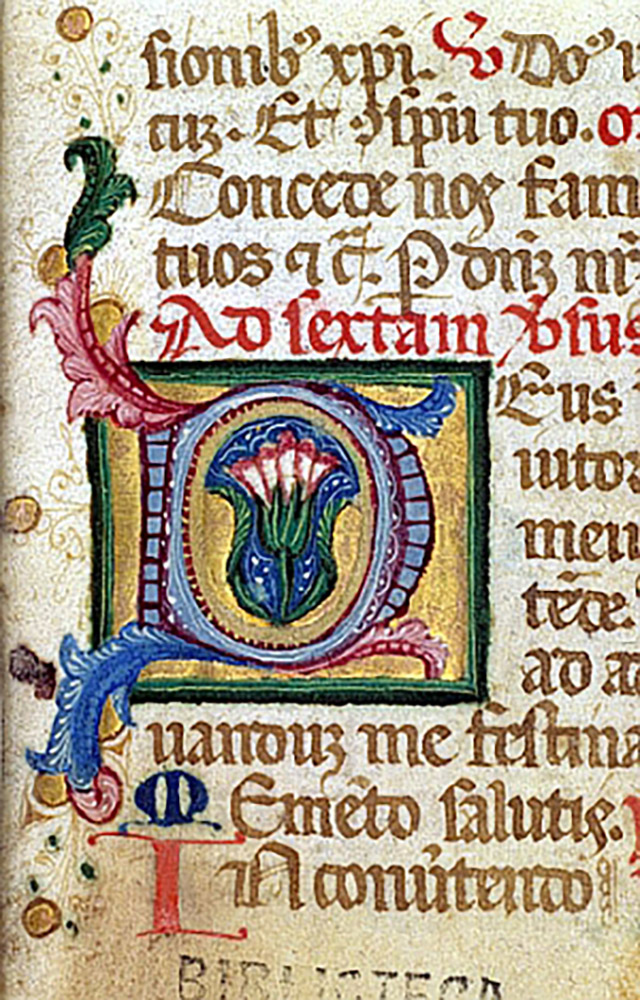 sionib⁹ xp̄i. V̶ Do⁹
cuz. Et ↄ sp̄u tuo. o
Concede nos fam
tuos ⁊ c̄. P dn̄z nr̄
Ad sextam V̶sus
DEus
iuto
meu
tēde.
ad a
uanduz me festina
MEmēto salutis.
IN conuētendo
BIBLIOTECA